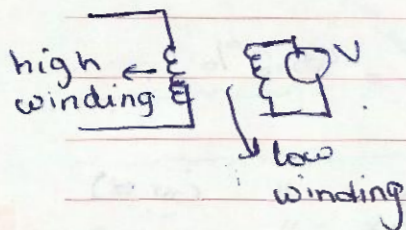 high
winding
V
low
winding